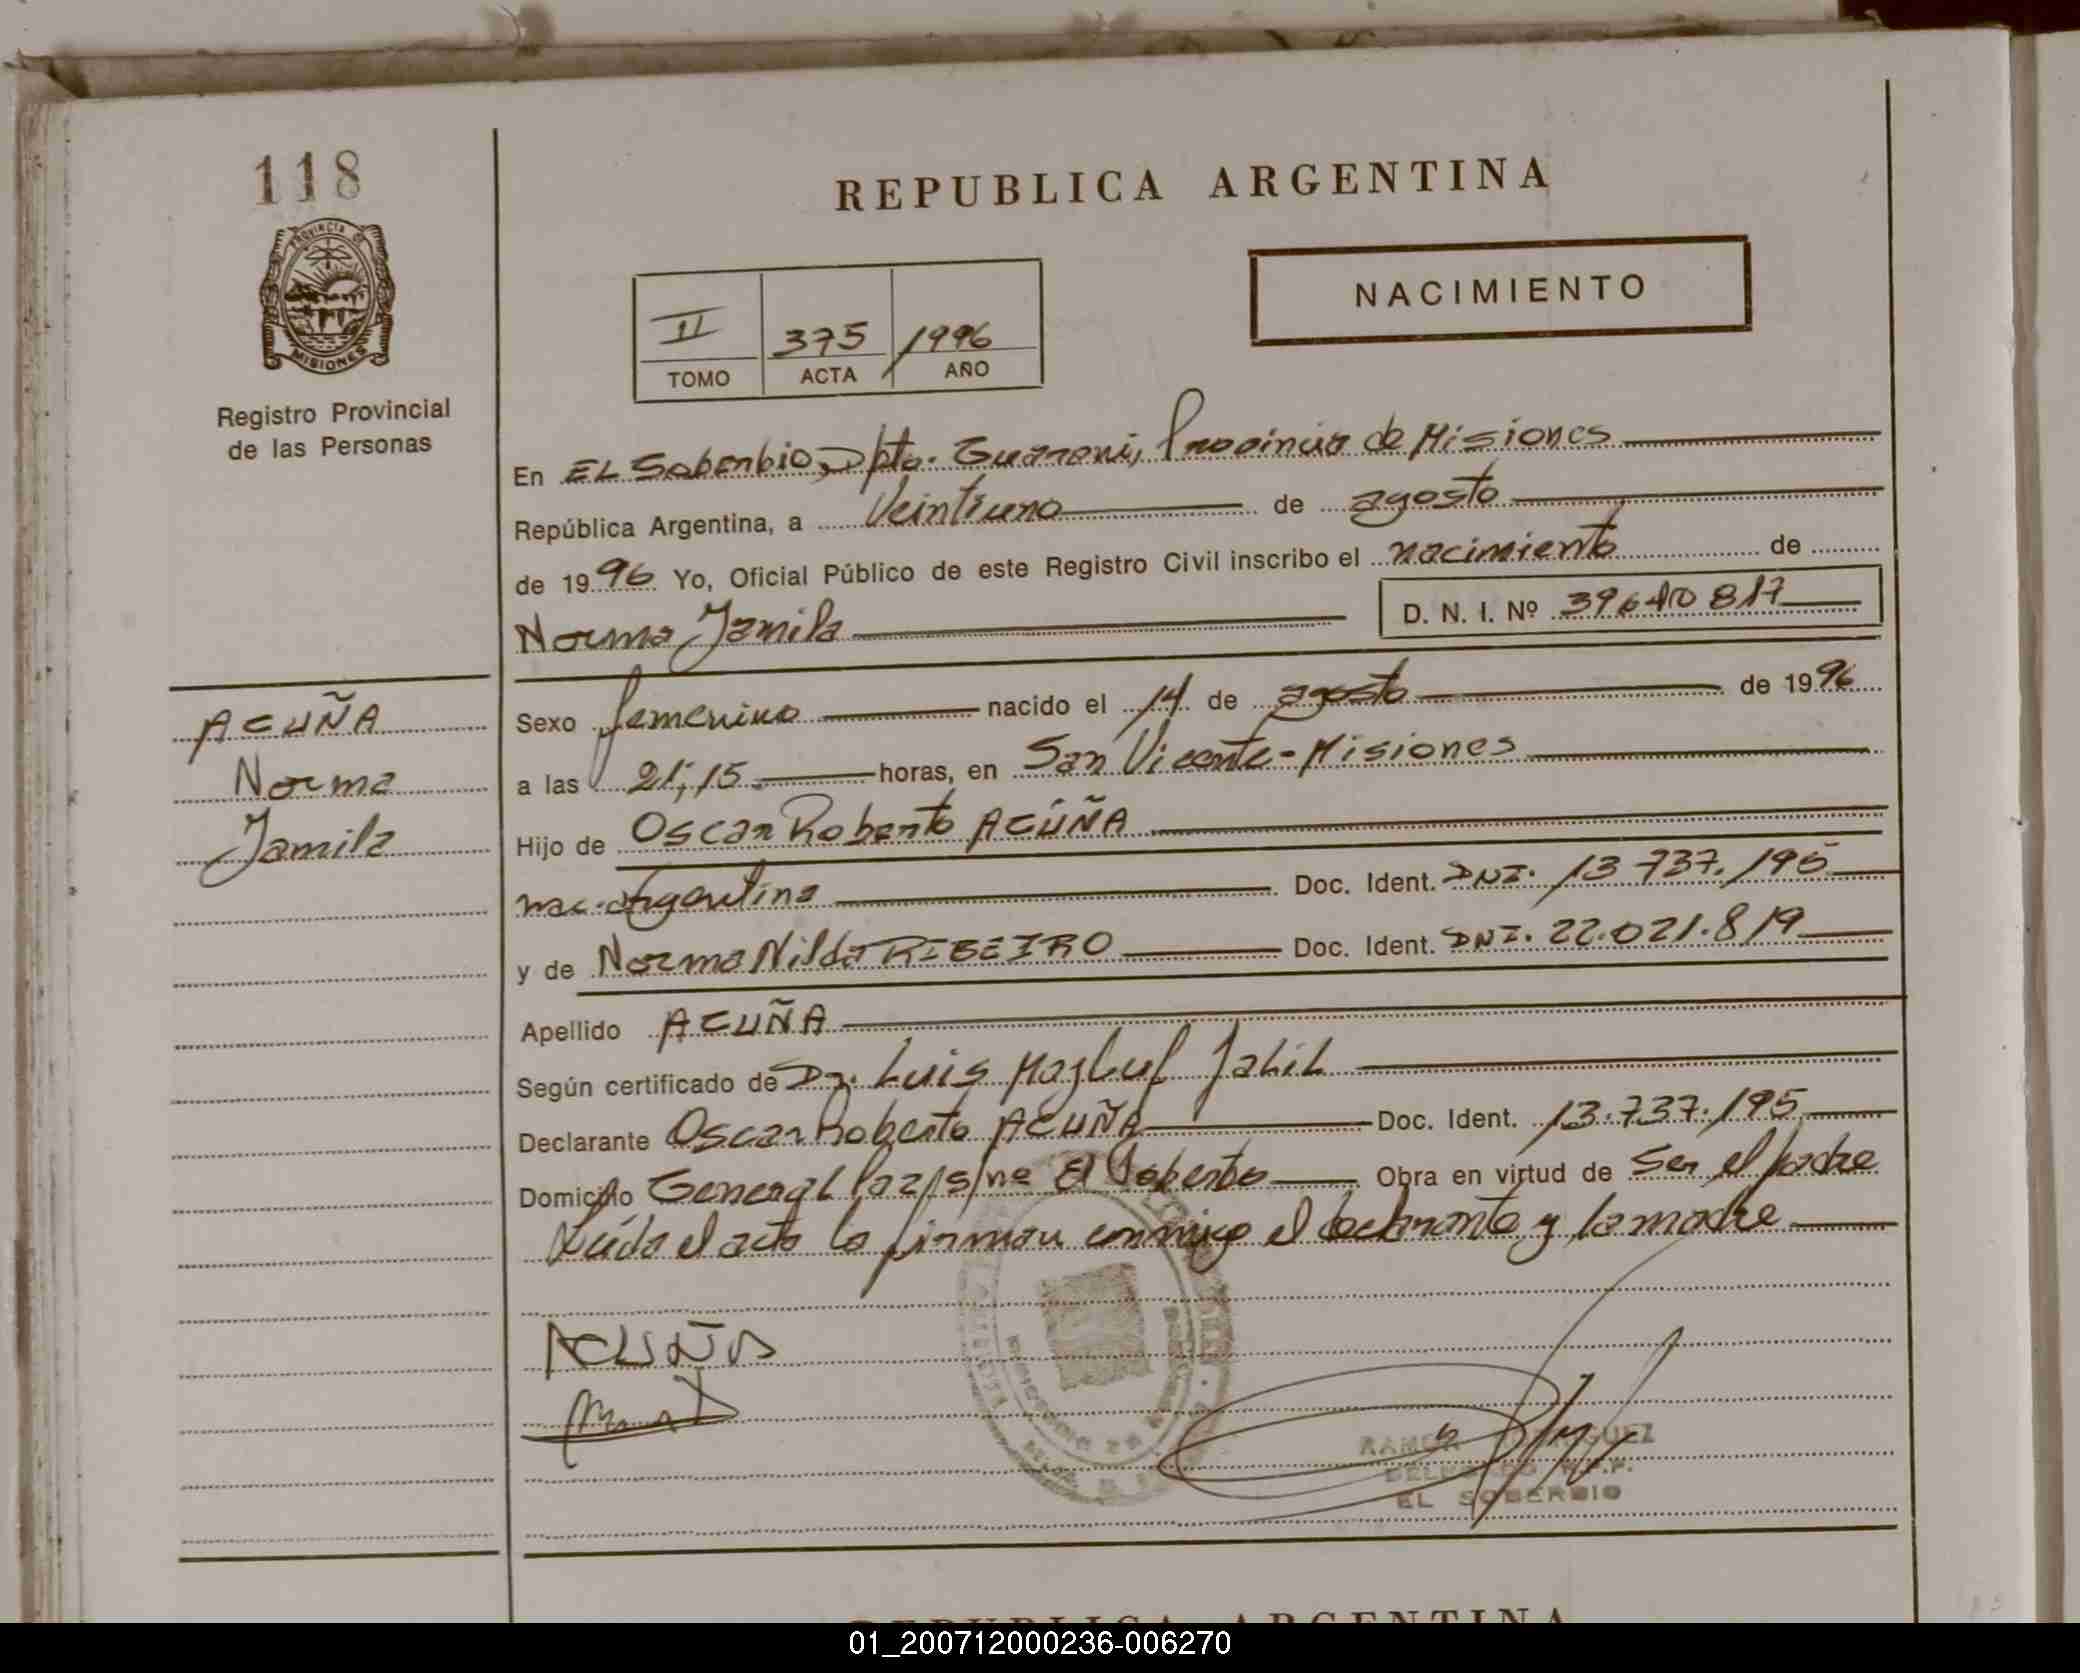 118
REPUBLICA ARGENTINA
PROVINCIA DE
MISIONES
NACIMIENTO
II 375 1996
TOMO ACTA AÑO
Registro Provincial
de las Personas
En EL Soberbio, Dpto. Guarani, Provincia de Misiones
República Argentina, a Veintiuno de agosto
de 1996 Yo, Oficial Público de este Registro Civil inscribo el nacimiento de
Norma Jamila D. N. I. Nº 39640817
ACUÑA
Norma
Jamila
Sexo femenino nacido el 14 de agosto de 1996
a las 21,15 horas, en San Vicente-Misiones
Hijo de Oscar Roberto ACUÑA
nac. argentina Doc. Ident. DNI. 13.737.195
y de Norma Nilda RIBEIRO Doc. Ident. DNI. 22.021.819
Apellido ACUÑA
Según certificado de Dr. Luis Mazluf Jalil
Declarante Oscar Roberto ACUÑA Doc. Ident. 13.737.195
Domicilio General Paz s/nº El Soberbio Obra en virtud de Ser el padre
Leida el acta la firman conmigo el declarante y la madre
ACUÑA
RAMON
EL SOBERBIO
REPUBLICA ARGENTINA
01_200712000236-006270